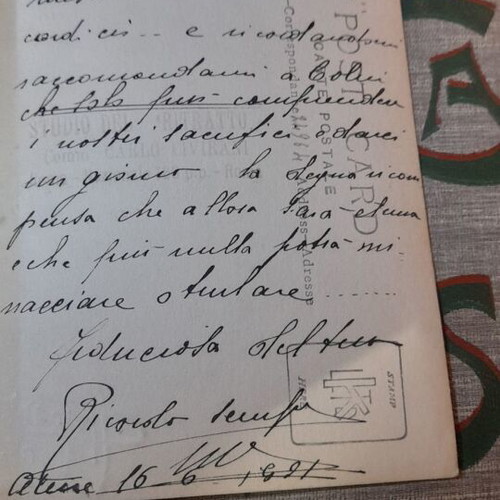 cordicis... e ricordandomi
raccomandami a Colui
che solo può comprendere
i nostri sacrifici e darci
un giorno la degna ricom
pensa che allora sarà eterna
e che più nulla potrà mi-
nacciare o turbare ........
Fiduciosa del tuo
Ricordo sempre
16 6 1921
"POST CARD"
CARTE POSTALE
Correspondance
Address-Adresse
STUDIO DEL RITRATTO
CARLO VIVIRANI
STAMP
HERE